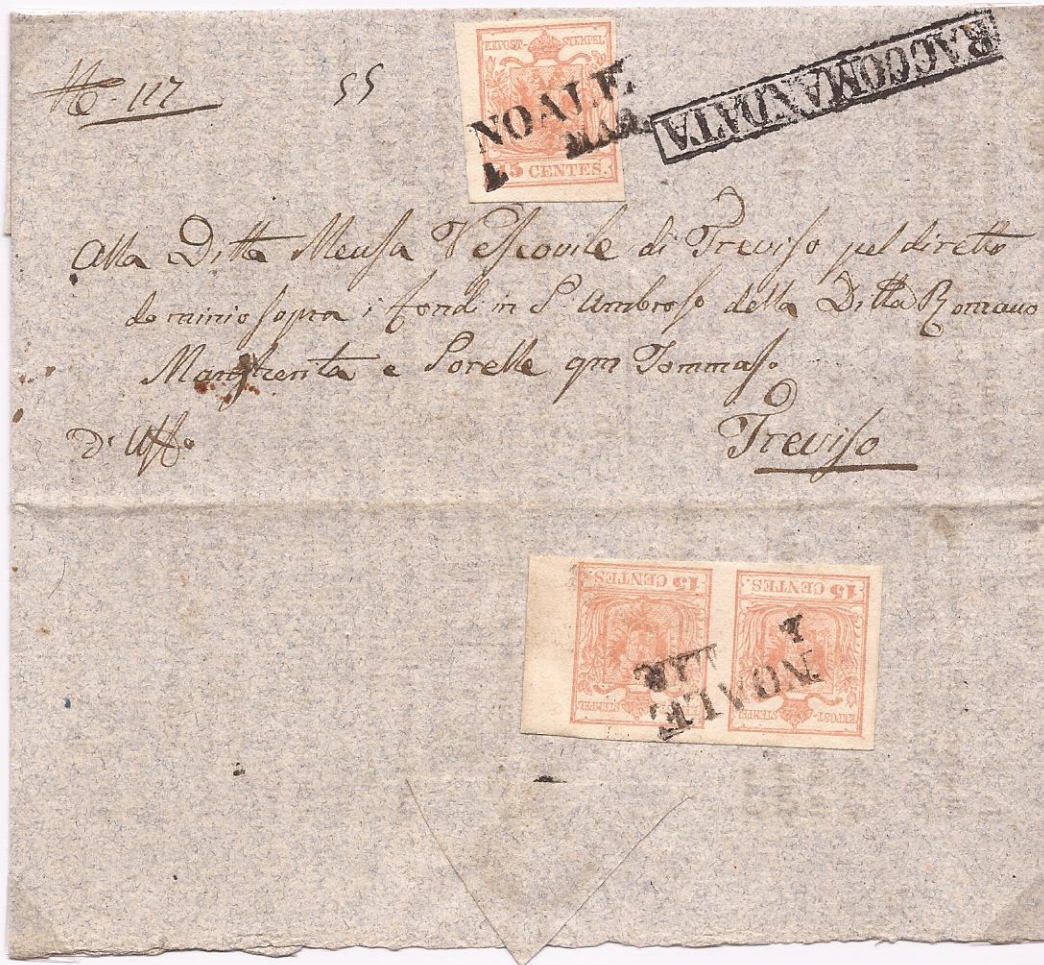 No 117
55
KKPOST-STEMPEL
15 CENTES.
NOALE
1 MAR.
RACCOMANDATA
Alla Ditta Mensa Vescovile di Treviso pel diretto
dominio sopra i fondi in S. Ambroso della Ditta Romano
Margherita e Sorelle qm Tommaso
Treviso
D'Uffo
15 CENTES.
15 CENTES.
1
NOALE
KKPOST-STEMPEL
KKPOST-STEMPEL